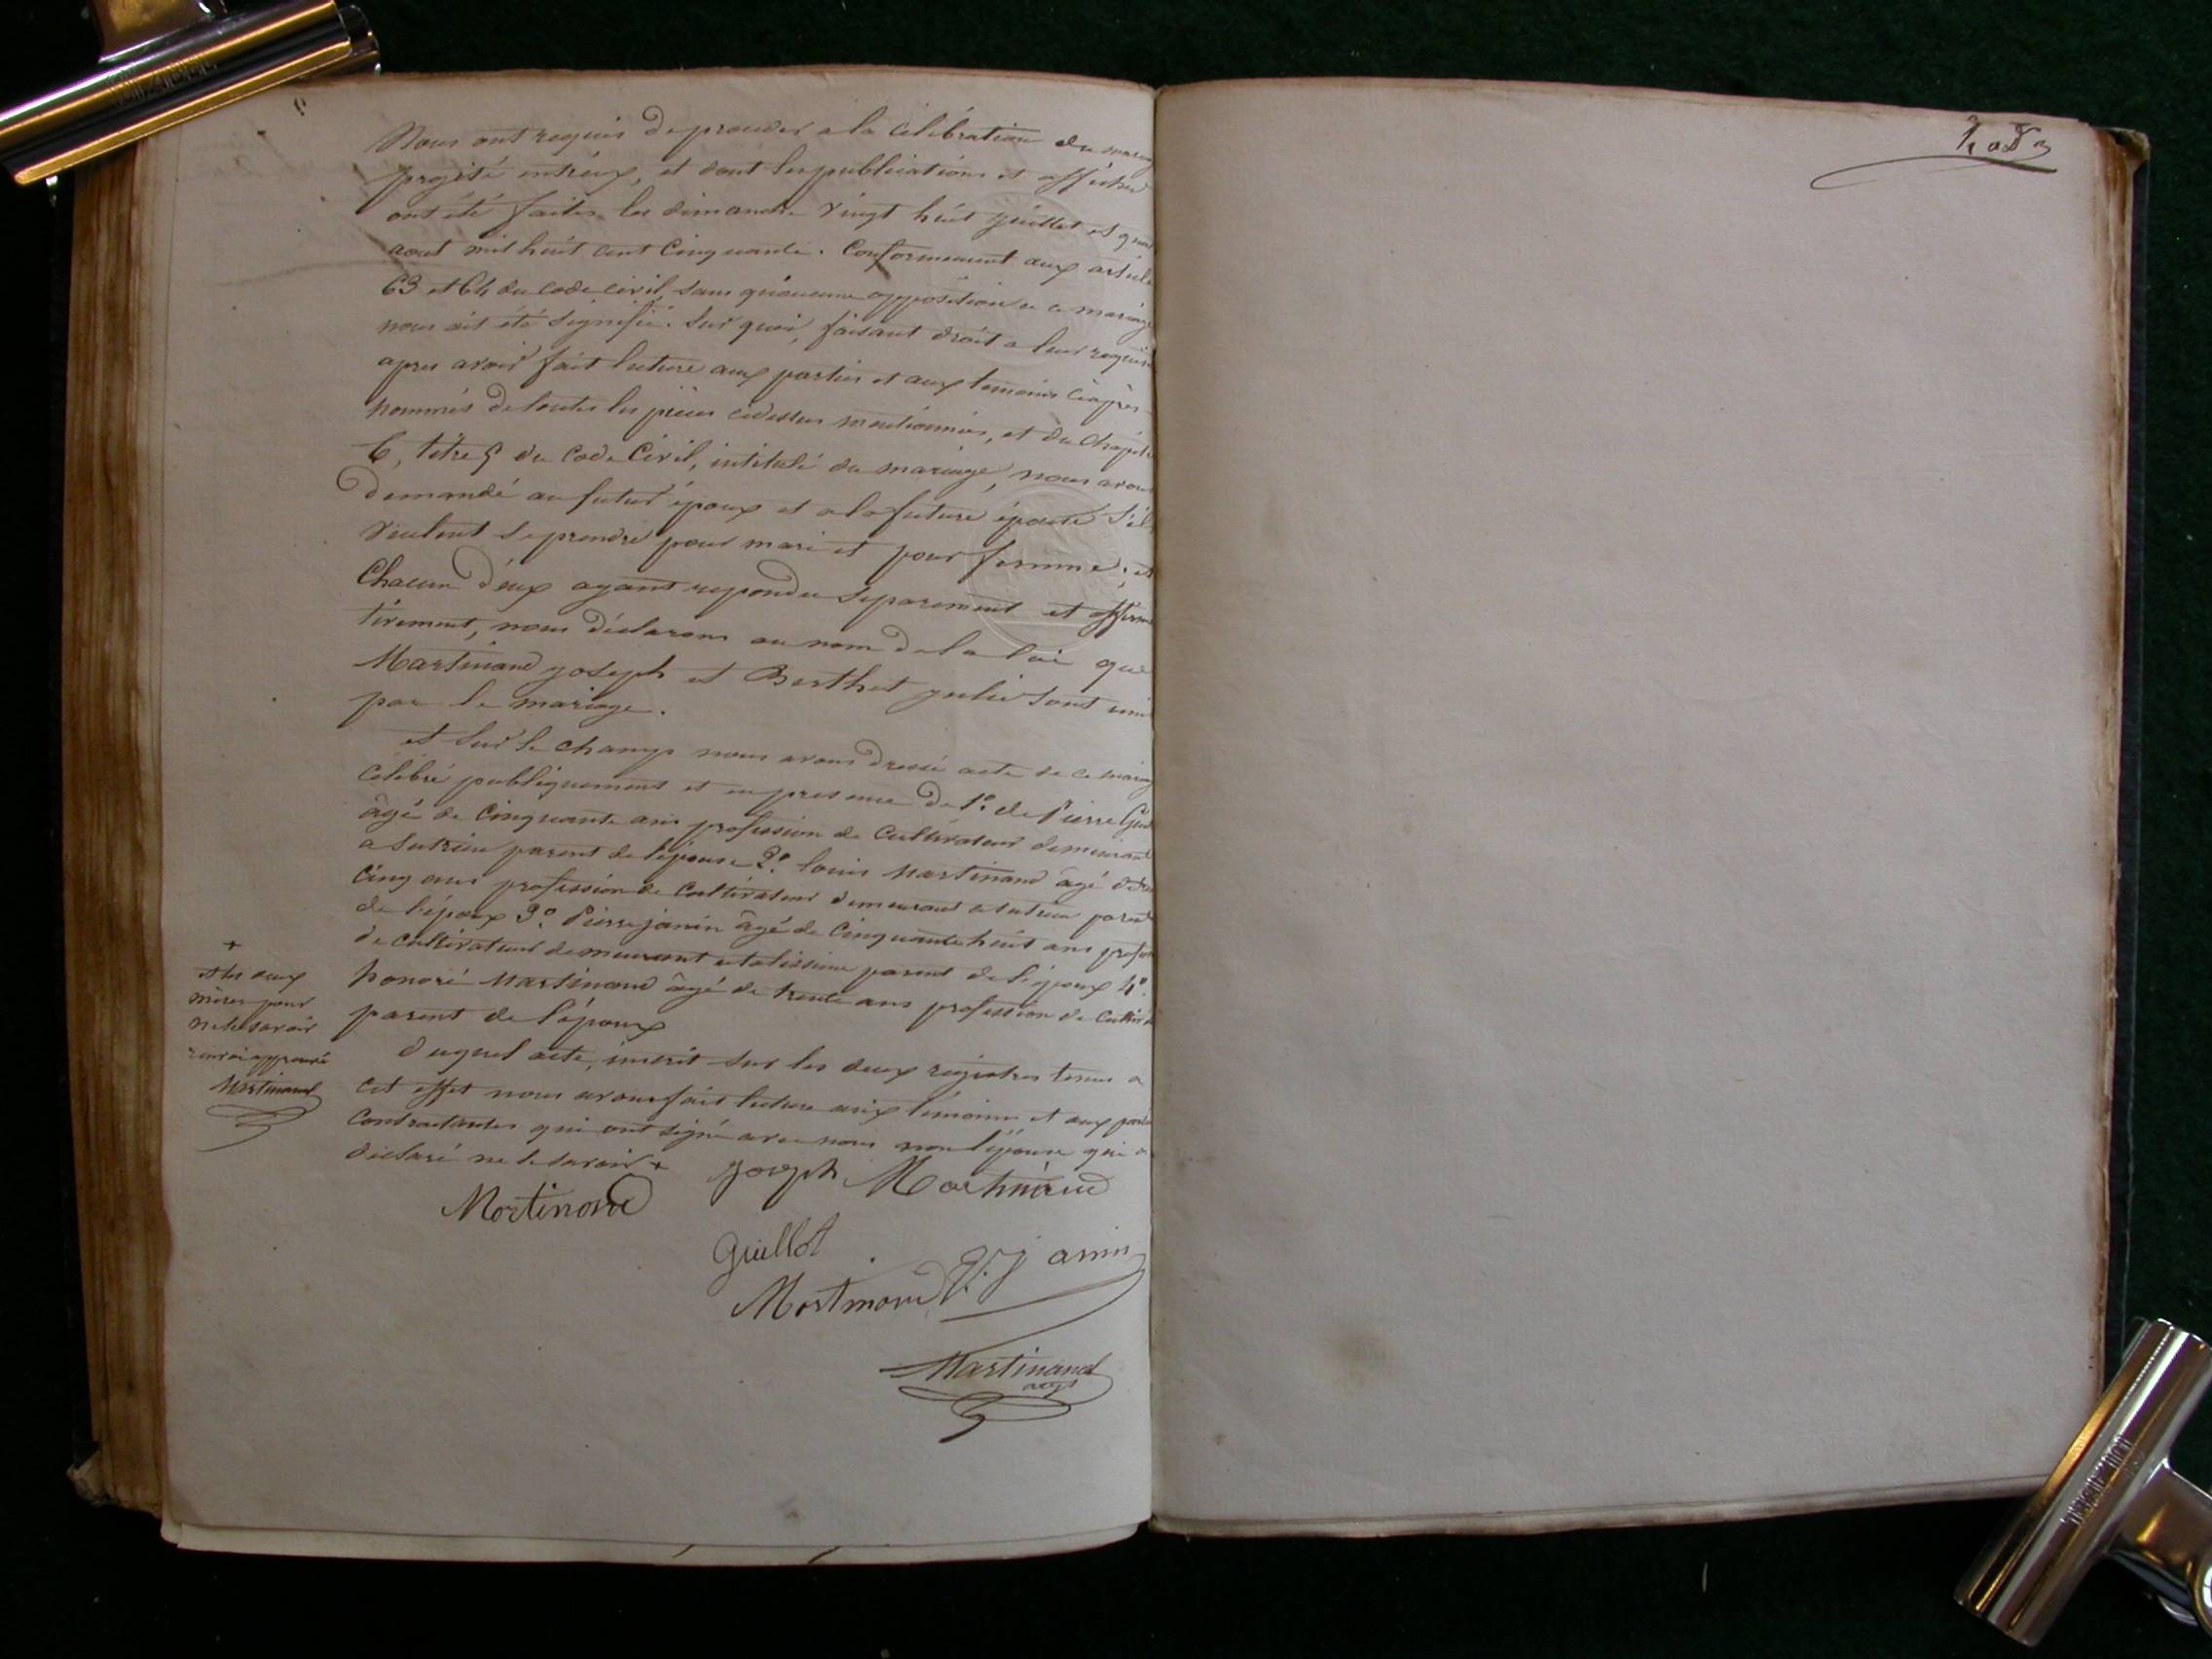 Nous ont requis de proceder a la célébration du mariage
projeté entr'eux, et dont les publications et affiches
ont été faites les dimanche vingt huit juillet et
aout mil huit cent cinquante. Conformement aux article
63 et 64 du code civil, sans qu'aucune opposition a ce mariage
nous ait été signifié. Sur quoi, faisant droit a leur
apres avoir fait lecture aux parties et aux temoins ciaprès
nommés de toutes les pièces cidessus mentionnées, et du chapitre
6, titre 5 du code Civil, intitulé du mariage, nous avons
demandé au futur époux et a la future épouse s'il
veulent se prendre pour mari et pour femme; et
Chacun d'eux ayant repondu separement et affirma
tivement, nous déclarons au nom de la loi que
Martinand joseph et Berthet julie sont uni
par le mariage.
et sur le champ nous avons dressé acte de ce mariage
célébré publiquement et en presence de 1° de Pierre
âgé de cinquante ans profession de cultivateur demeurant
a Sutrieu parent de l'épouse 2° louis Martinand âgé de
cinq ans profession de cultivateur demeurant a Sutrieu parent
de l'époux 3° Pierre janin âgé de cinquante huit ans
de cultivateur demeurant a talissieu parent de l'époux 4°
honoré Martinand âgé de trente ans profession de
parent de l'époux
duquel acte, inscrit sur les deux régistres tenus a
cet effet nous avons fait lecture aux témoins et aux
contractantes qui ont signé avec nous non l'épouse qui a
déclaré ne le savoir +
+
et les deux
mères pour
ne le savoir
renvoi approuvé
Martinand
joseph Martinand
Martinand
Guillot
P. janin
Martinand
Martinand